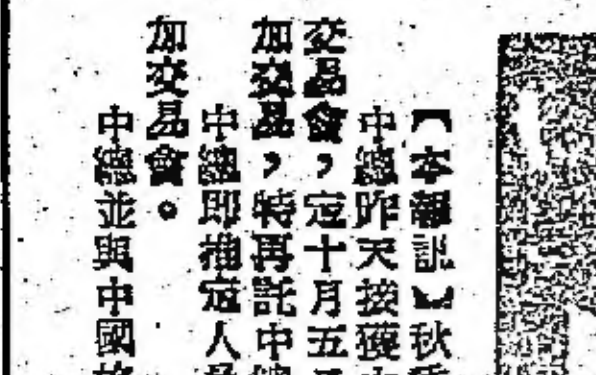 【本報訊】秋
中總昨天接獲
交易會，定十月五
加交易，特再託中總
中總即推定人
加交易會。
中總並與中國